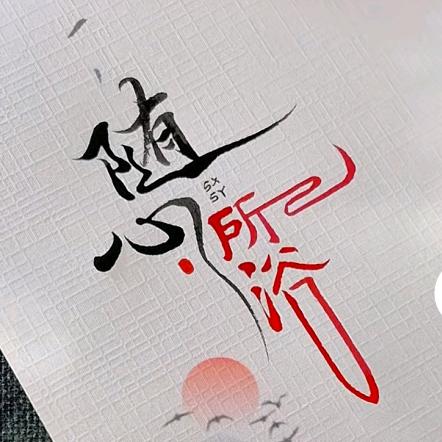 随心
SX
SY
所欲